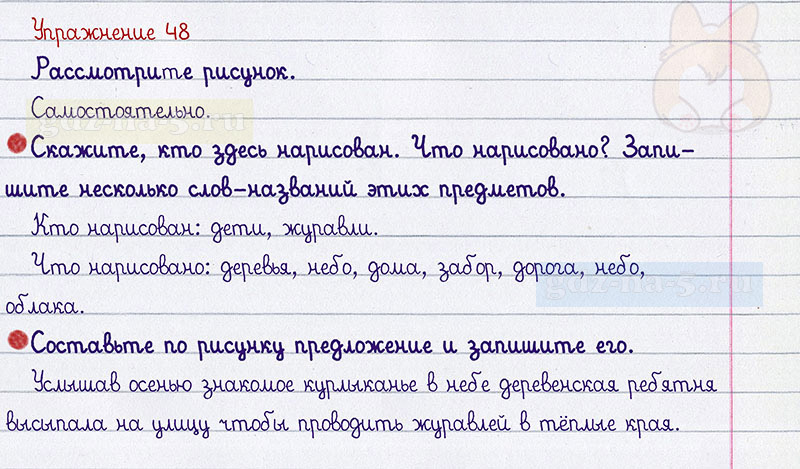 Упражнение 48
Рассмотрите рисунок.
Самостоятельно.
gdz-na-5.ru
Скажите, кто здесь нарисован. Что нарисовано? Запи-
шите несколько слов-названий этих предметов.
Кто нарисован: дети, журавли.
Что нарисовано: деревья, небо, дома, забор, дорога, небо,
gdz-na-5.ru
облака.
Составьте по рисунку предложение и запишите его.
Услышав осенью знакомое курлыканье в небе деревенская ребятня
высыпала на улицу чтобы проводить журавлей в тёплые края.